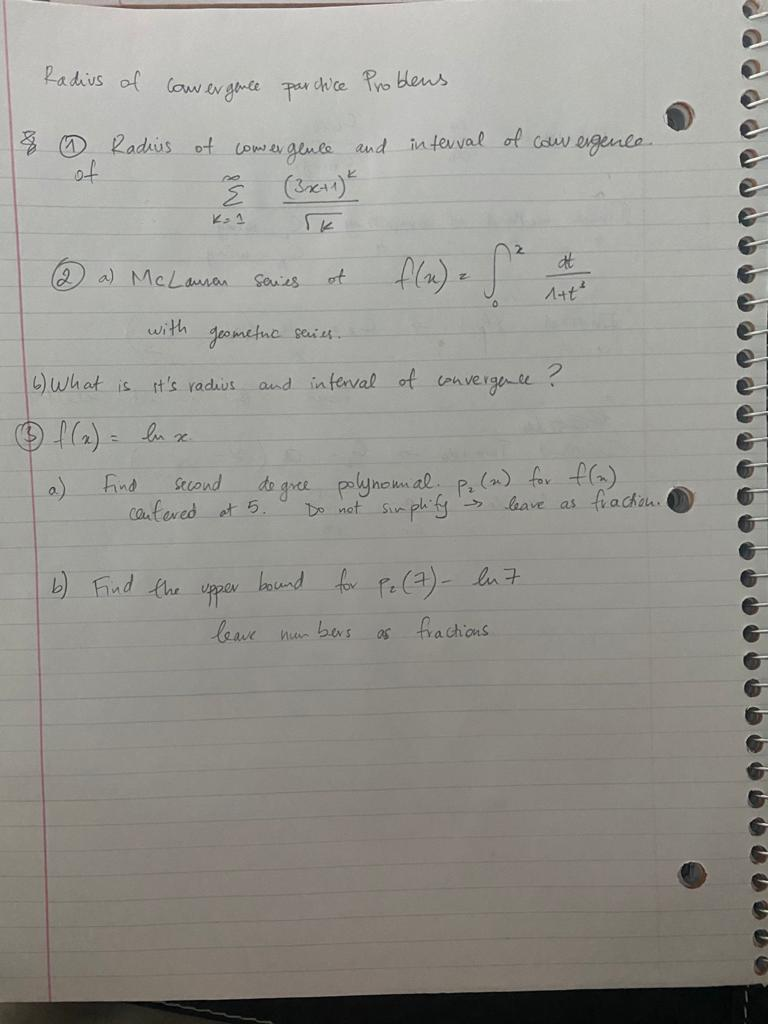 Radius of Convergence parctice Problems
① Radius of convergence and interval of convergence
of
∞
Σ (3x+1)^k / √k
k=1
② a) McLauren Series of f(x) = ∫₀ˣ dt / 1+t³
with geometric series.
b) What is it's radius and interval of convergence?
③ f(x) = ln x
a) Find second degree polynomial. p₂(x) for f(x)
centered at 5. Do not simplify → leave as fraction.
b) Find the upper bound for p₂(7) - ln 7
leave numbers as fractions